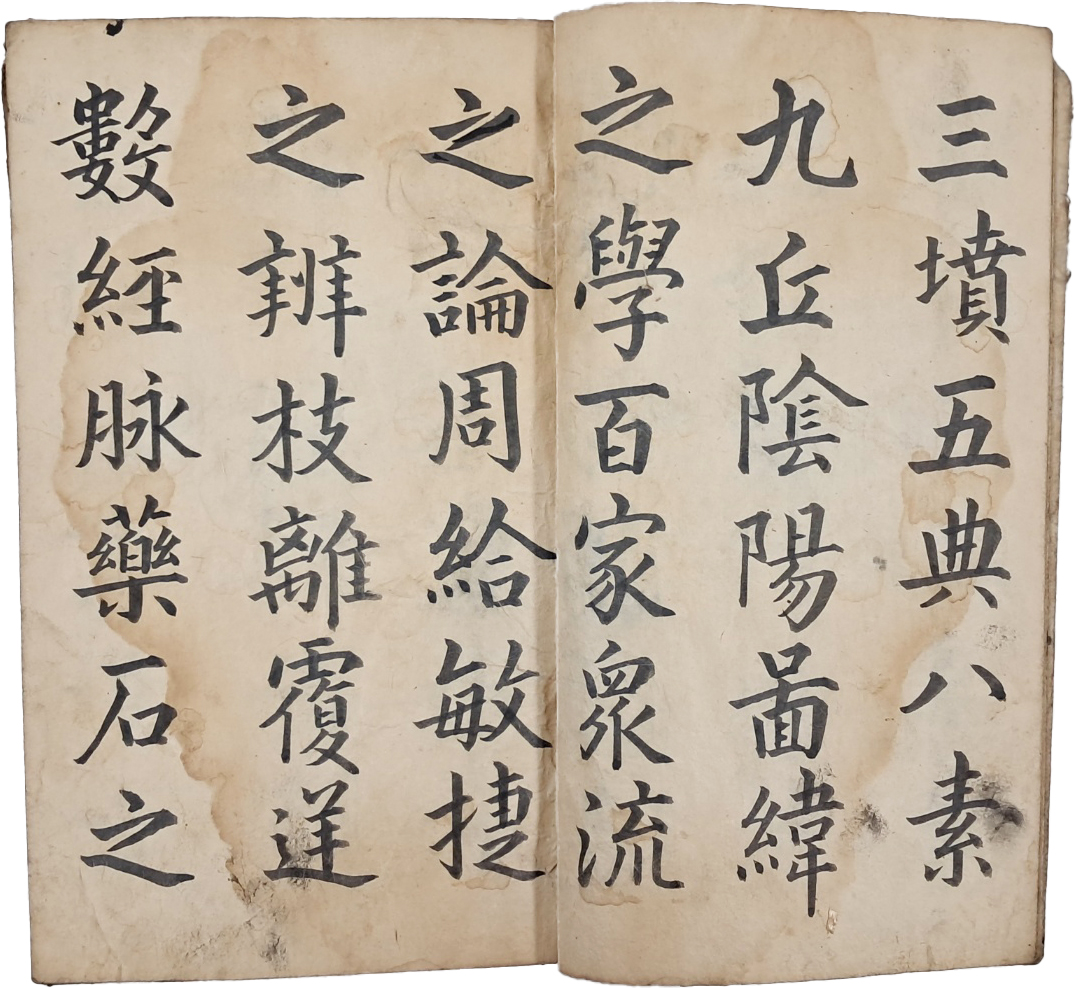 三墳五典八素
九丘陰陽啚緯
之學百家眾流
之論周給敏捷
之辨枝離覆逆
數經脉藥石之